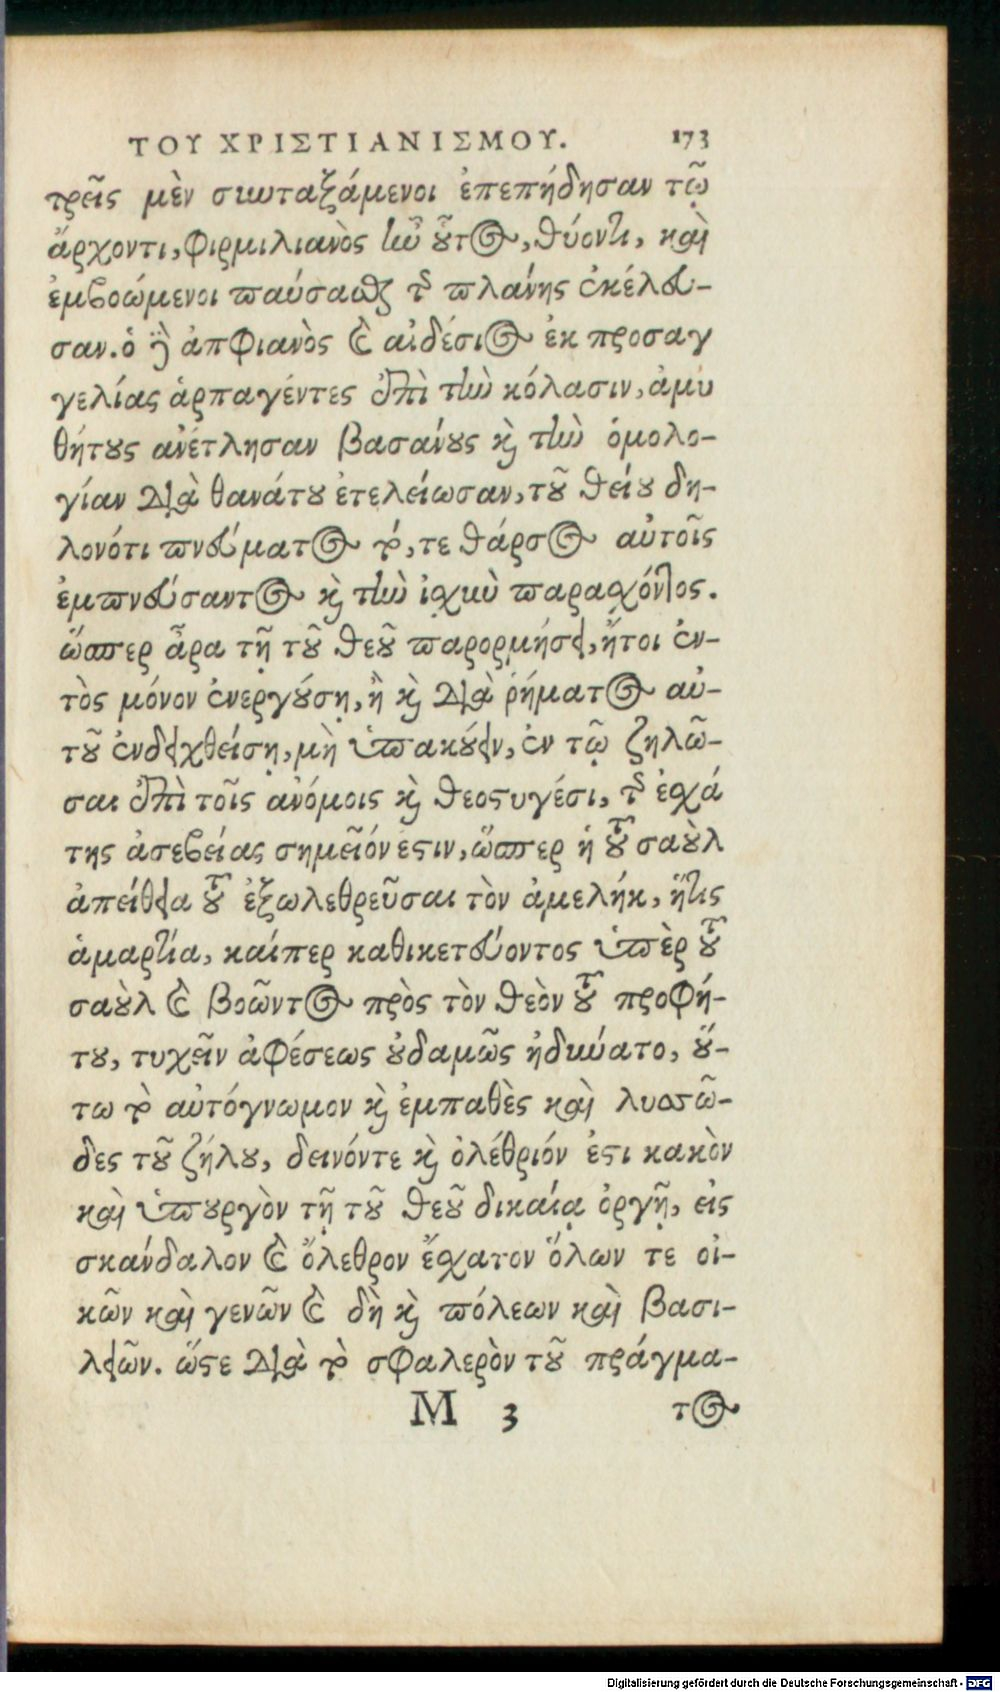 ΤΟΥ ΧΡΙΣΤΙΑΝΙΣΜΟΥ. 173
τρεῖς μὲν συνταξάμενοι ἐπεπήδησαν τῷ
ἄρχοντι, φιρμιλιανὸς ἦν οὗτος, θύοντι, καὶ
ἐμβοώμενοι παύσασθαι τῆς πλάνης ἐκέλευ-
σαν. ὁ δὲ ἀπφιανὸς καὶ αἰδέσιος ἐκ προσαγ
γελίας ἁρπαγέντες ἐπὶ τὴν κόλασιν, ἀμυ
θήτους ἀνέτλησαν βασάνους καὶ τὴν ὁμολο-
γίαν διὰ θανάτου ἐτελείωσαν, τοῦ θείου δη-
λονότι πνεύματος τό, τε θάρσος αὐτοῖς
ἐμπνεύσαντος καὶ τὴν ἰσχὺν παρασχόντος.
ὥσπερ ἆρα τῇ τοῦ θεοῦ παρορμήσει, ἤτοι ἐν-
τὸς μόνον ἐνεργούσῃ, ἢ καὶ διὰ ῥήματος αὐ-
τοῦ ἐνδειχθείσῃ, μὴ ὑπακούειν, ἐν τῷ ζηλῶ-
σαι ἐπὶ τοῖς ἀνόμοις καὶ θεοστυγέσι, τῆς ἐσχά
της ἀσεβείας σημεῖόν ἐστιν, ὥσπερ ἡ τοῦ σαοὺλ
ἀπείθεια τοῦ ἐξωλεθρεῦσαι τὸν ἀμελήκ, ἥτις
ἁμαρτία, καίπερ καθικετεύοντος ὑπὲρ τοῦ
σαοὺλ καὶ βοῶντος πρὸς τὸν θεὸν τοῦ προφή-
του, τυχεῖν ἀφέσεως οὐδαμῶς ἠδυνήατο, οὕ-
τω τὸ αὐτόγνωμον καὶ ἐμπαθὲς καὶ λυσσῶ-
δες τοῦ ζήλου, δεινόντε καὶ ὀλέθριόν ἐστι κακὸν
καὶ ὑπουργὸν τῇ τοῦ θεοῦ δικαίᾳ ὀργῇ, εἰς
σκάνδαλον καὶ ὄλεθρον ἔσχατον ὅλων τε οἰ-
κῶν καὶ γενῶν καὶ δὴ καὶ πόλεων καὶ βασι-
λειῶν. ὥστε διὰ τὸ σφαλερὸν τοῦ πράγμα-
M 3 τος
Digitalisierung gefördert durch die Deutsche Forschungsgemeinschaft - DFG